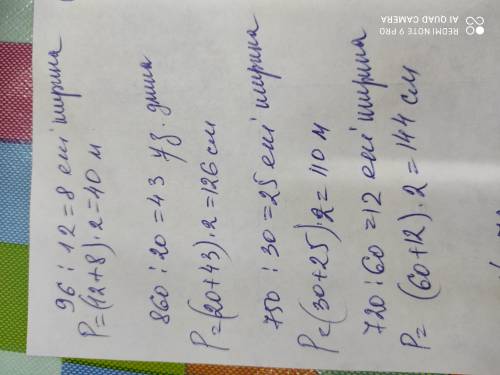 96 : 12 = 8 ені ширина
P = (12+8)·2 = 40 м
860 : 20 = 43 ұз. длина
P = (20+43)·2 = 126 см
750 : 30 = 25 ені ширина
P = (30+25)·2 = 110 м
720 : 60 = 12 ені ширина
P = (60+12)·2 = 144 см
REDMI NOTE 9 PRO
AI QUAD CAMERA